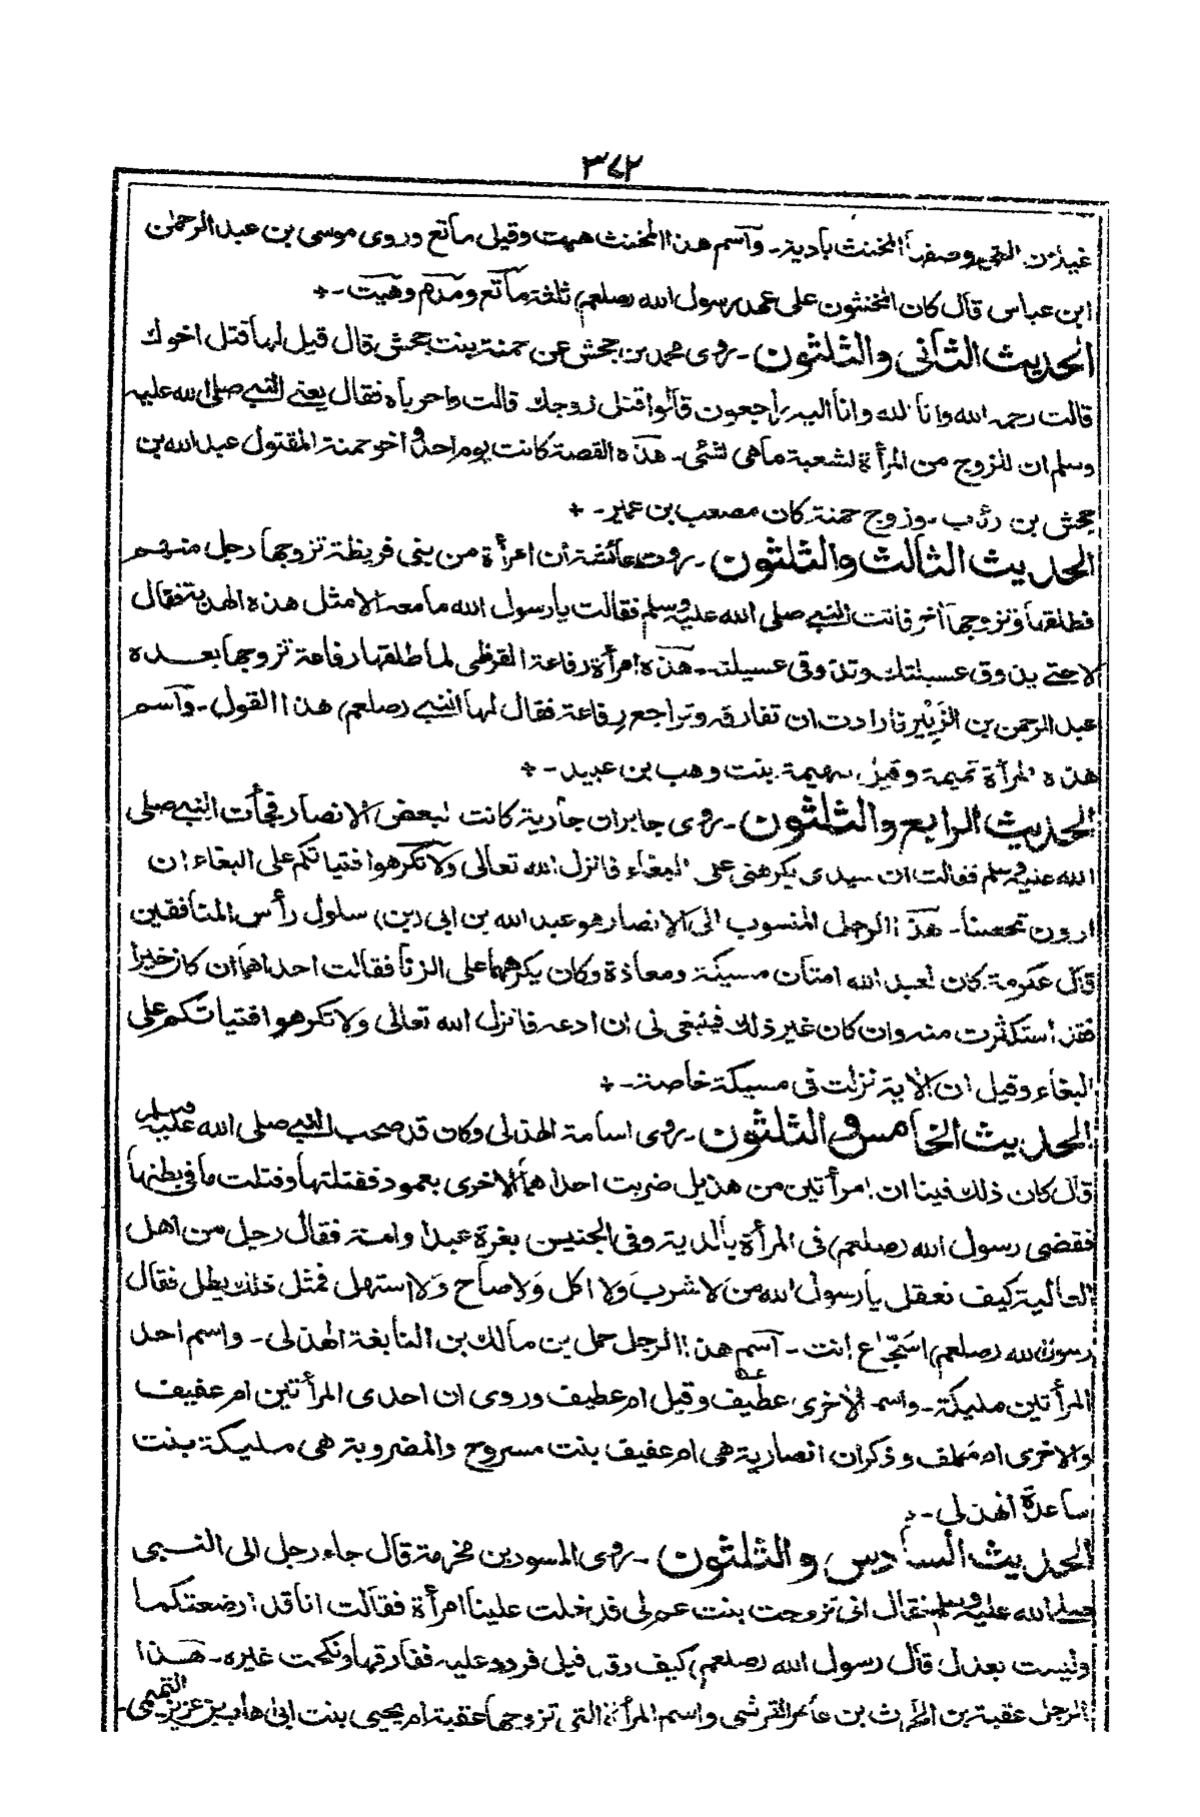 ٣٤٢
غيلان الثقفي وصفها المخنث بادية۔ وآسم هذا المخنث هيت وقيل ماتع وروى موسى بن عبد الرحمٰن
ابن عباس قال كان المخنثون على عهد رسول الله (صلعم) ثلثة ماتع ومدهم وهيت۔ +
الحديث الثاني والثلثون۔ روى محمد بن جحش عن حمنة بنت جحش قال قيل لها قتل اخوك
قالت رحمه الله وانا لله وانا اليه راجعون قالوا قتل زوجك قالت واحرباه فقال يعني النبي صلى الله عليه
وسلم ان للزوج من المرأة لشعبة ماهى لشئى۔ هذه القصة كانت يوم احد واخو حمنة المقتول عبد الله بن
جحش بن رئاب۔ وزوج حمنة كان مصعب بن عمير۔ +
الحديث الثالث والثلثون۔ روت عائشة ان امرأة من بنى قريظة تزوجها رجل منهم
فطلقها وتزوجها آخر فاتت النبي صلى الله عليه وسلم فقالت يا رسول الله ما معه الا مثل هذه الهدبة فقال
لا حتى يذوق عسيلتك وتذوقى عسيلته۔ هذه امرأة رفاعة القرظى لما طلقها رفاعة تزوجها بعده
عبد الرحمن بن الزَبِير فارادت ان تفارقه وتراجع رفاعة فقال لها النبي (صلعم) هذا القول۔ وآسم
هذه المرأة تميمة وقيل سهيمة بنت وهب بن عبيد۔ +
الحديث الرابع والثلثون۔ روى جابر ان جارية كانت لبعض الانصار فجأت النبي صلى
الله عليه وسلم فقالت ان سيدى يكرهنى على البغاء فانزل الله تعالى ولا تكرهوا فتياتكم على البغاء ان
اردن تحصنا۔ هذا الرجل المنسوب الى الانصار هو عبد الله بن ابى (بن) سلول رأس المنافقين
قال عكرمة كان لعبد الله امتان مسيكة ومعاذة وكان يكرههما على الزنا فقالت احداهما ان كان خيرا
فقد استكثرت منه وان كان غير ذلك فينبغى لى ان ادعه فانزل الله تعالى ولا تكرهوا فتياتكم على
البغاء وقيل ان الاية نزلت فى مسيكة خاصة۔ +
الحديث الخامس والثلثون۔ روى اسامة الهذلى وكان قد صحب النبي صلى الله عليه وسلم
قال كان ذلك فينا ان امرأتين من هذيل ضربت احداهما الاخرى بعمود فقتلتها وقتلت ما فى بطنها
فقضى رسول الله (صلعم) فى المرأة بالدية وفى الجنين بغرة عبدا وامة فقال رجل من اهل
العالية كيف نعقل يا رسول الله من لا شرب ولا اكل ولا صاح ولا استهل فمثل ذلك يطل فقال
رسول الله (صلعم) اسَجّاع انت۔ آسم هذا الرجل حمل بن مالك بن النابغة الهذلى۔ واسم احد
المرأتين مليكة۔ واسم الاخرى عطيف وقيل ام عطيف وروى ان احدى المرأتين ام عفيف
والاخرى ام مكلف وذكر ان انصارية هى ام عفيف بنت مسروح والمضروبة هى مليكة بنت
ساعدة الهذلى۔
الحديث السادس والثلثون۔ روى المسور بن مخرمة قال جاء رجل الى النبى
صلى الله عليه وسلم فقال انى تزوجت بنت عم لى فدخلت علينا امرأة فقالت انا قد ارضعتكما
وليست بعدل قال رسول الله (صلعم) كيف وقد قيل فردد عليه ففارقها ونكحت غيره۔ هذا
الرجل عقبة بن الحارث بن عامر القرشى واسم المرأة التى تزوجها عقبة ام يحيى بنت ابى هاب بن عزيز التميمى۔